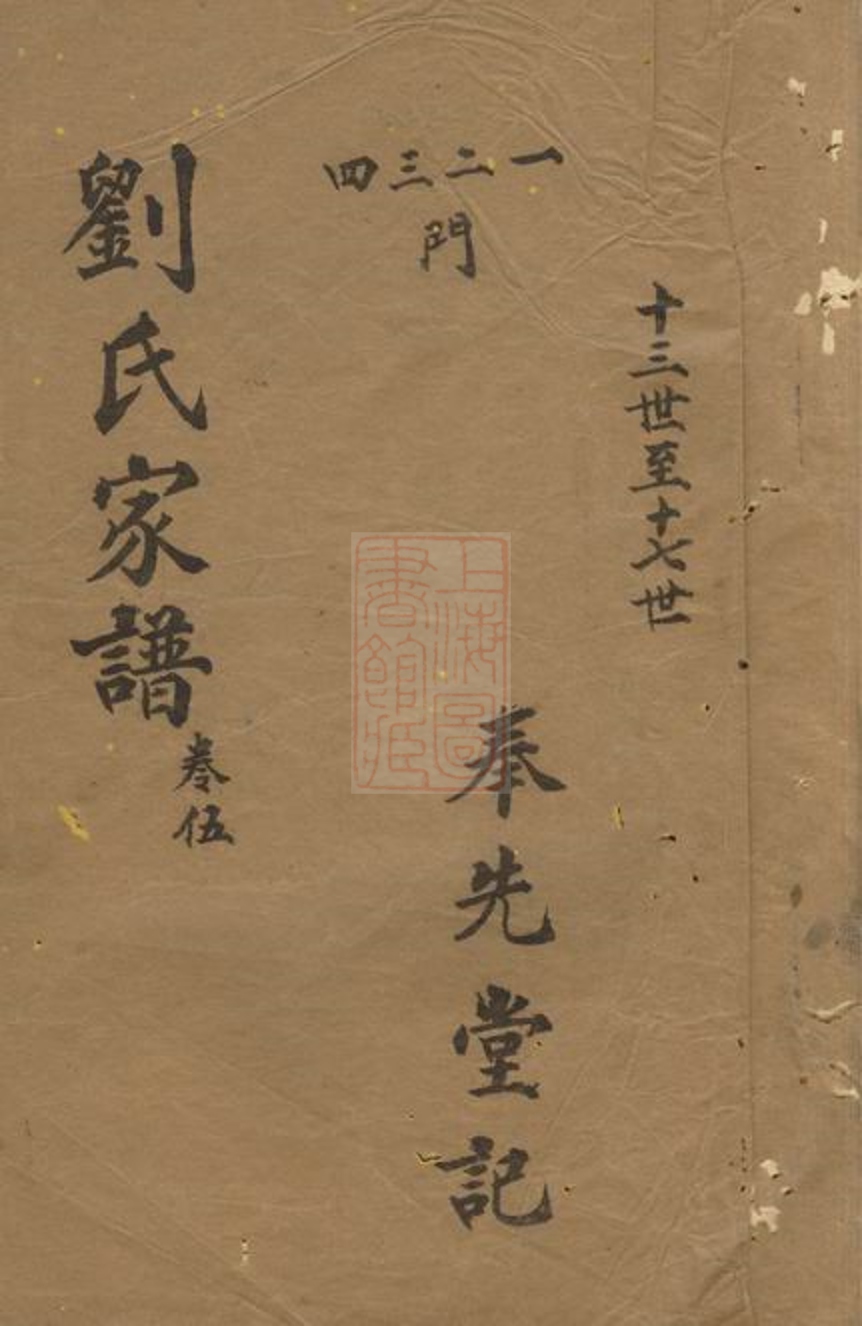 十三世至十七世
一二三四
門
奉先堂記
劉氏家譜
卷伍
上海圖
書館藏